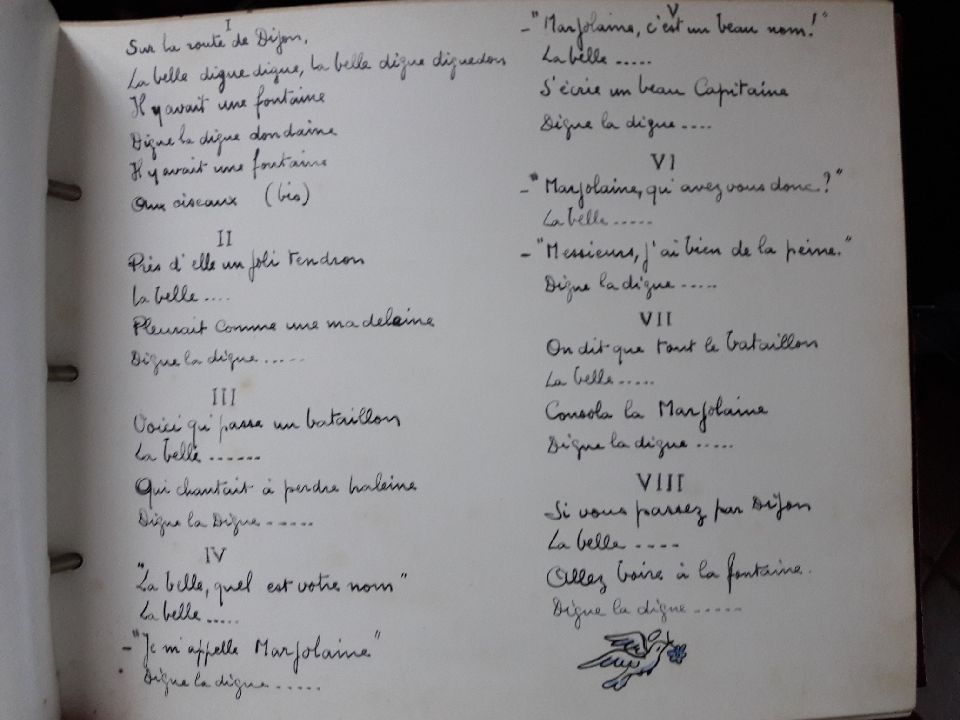 I
Sur la route de Dijon,
La belle digue digue, la belle digue diguedon
Il y avait une fontaine
Digue la digue dondaine
Il y avait une fontaine
Aux oiseaux (bis)
II
Près d'elle un joli tendron
La belle ....
Pleurait comme une madeleine
Digue la digue .....
III
Voici qu'passe un bataillon
La belle ......
Qui chantait à perdre haleine
Digue la Digue .....
IV
"La belle, quel est votre nom"
La belle .....
- "Je m'appelle Marjolaine"
Digue la digue .....
V
- "Marjolaine, c'est un beau nom!"
La belle .....
S'écrie un beau Capitaine
Digue la digue ....
VI
- "Marjolaine, qu'avez vous donc?"
La belle .....
- "Messieurs, j'ai bien de la peine."
Digue la digue .....
VII
On dit que tout le bataillon
La belle .....
Consola la Marjolaine
Digue la digue .....
VIII
Si vous passez par Dijon
La belle ....
Allez boire à la fontaine.
Digue la digue .....